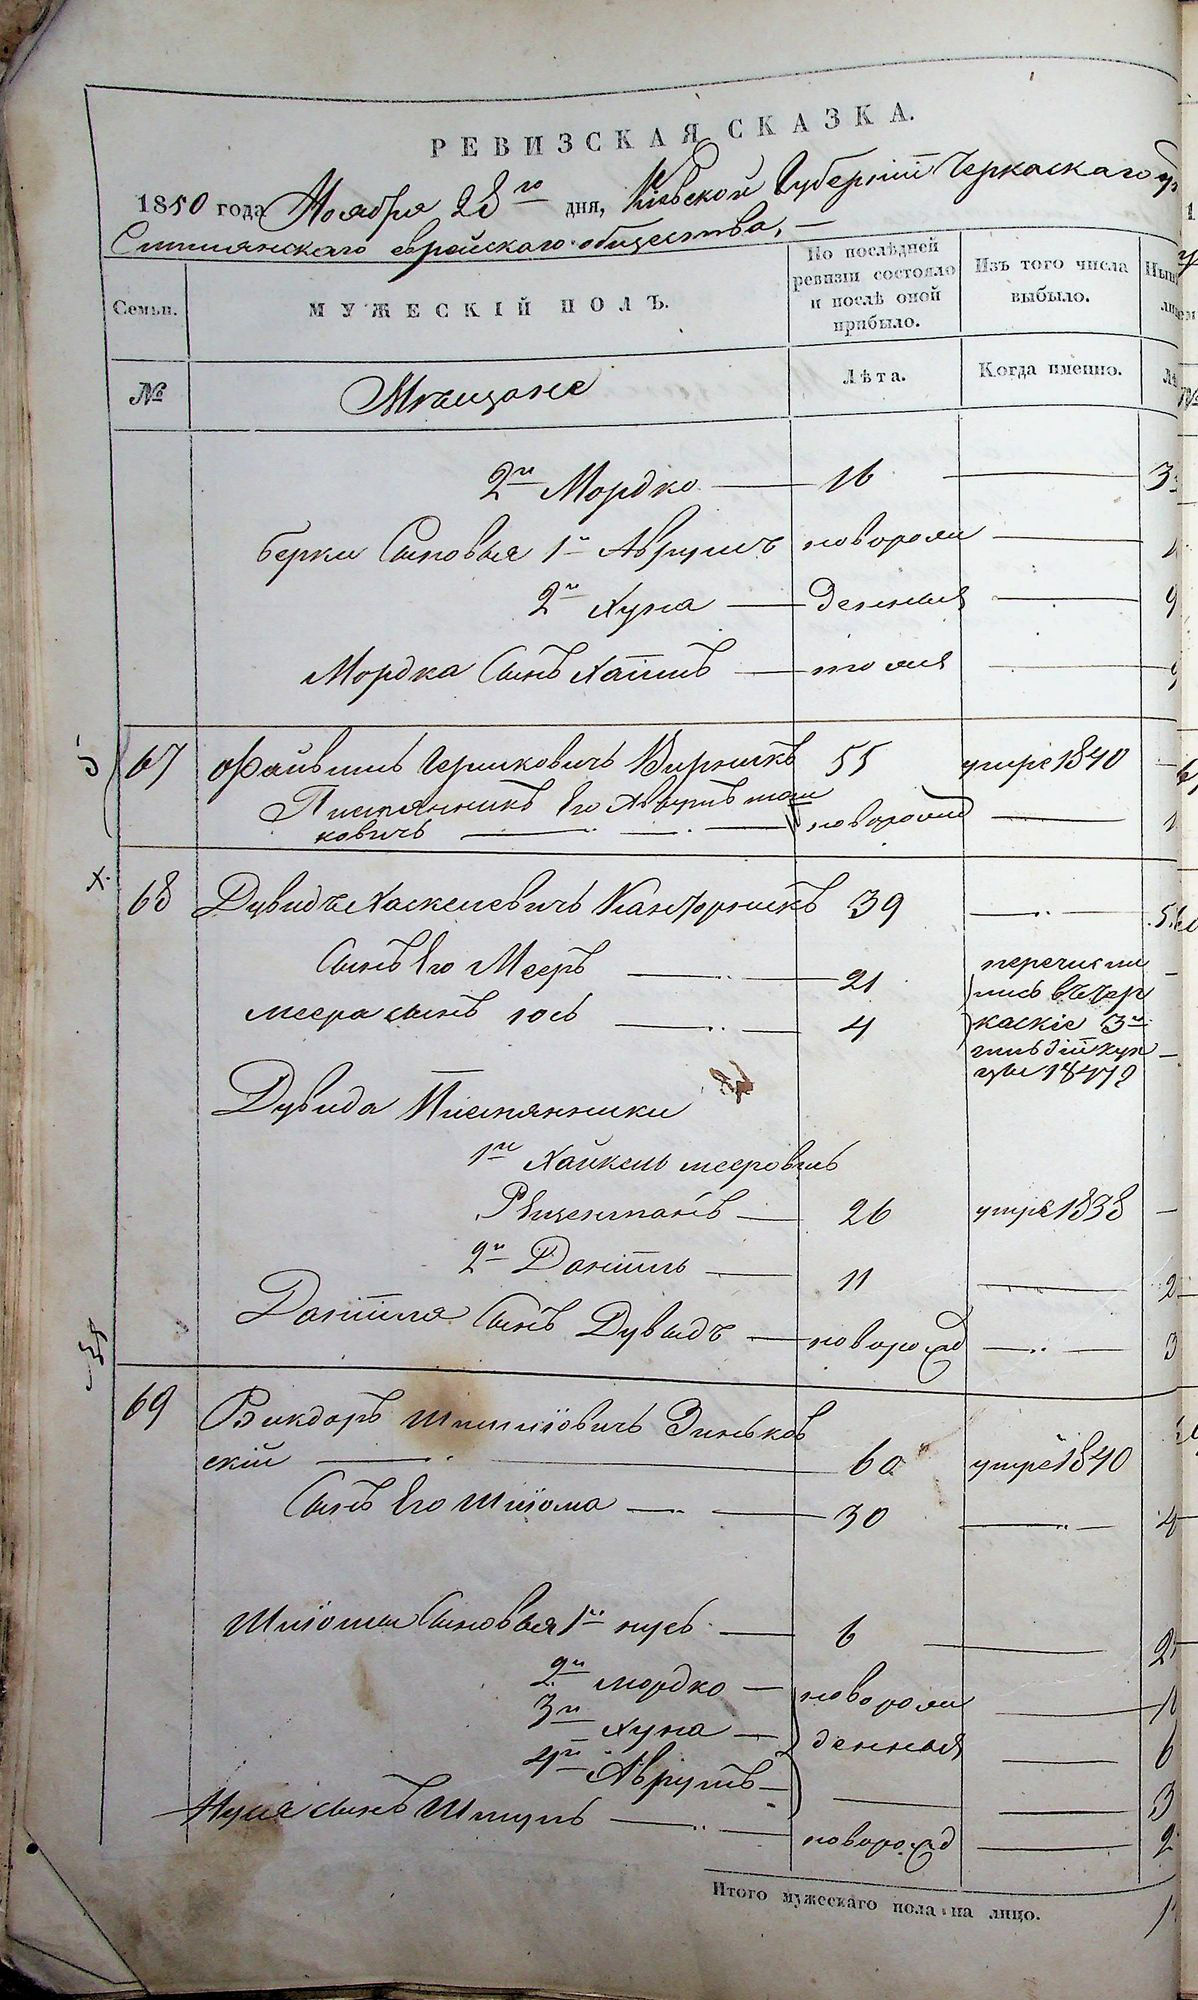 РЕВИЗСКАЯ СКАЗКА.
1850 года Ноября 28го дня, Кіевской Губерніи Черкаскаго
Смилянскаго еврейскаго общества,
Семьи. МУЖЕСКІЙ ПОЛЪ. По послѣдней ревизіи состояло и послѣ оной прибыло. Изъ того числа выбыло.
№ Мѣщане Лѣта. Когда именно.
2й Мордко 16
берки Сыновья 1й Аврумъ новорож
2й Хуна денныя
Мордка Сынъ Хаимъ тожъ
67 Файвишь Гершковичь Вирникъ 55 умре 1840
Племянникъ Его Аврумъ мош
ковичь новорожд
68 Дувидъ Хаскелевичь Канторщикъ 39
Сынъ Его Мееръ 21 перечисли
меера сынъ іось 4 лись въ Чер
каскіе 3й
гильдіи куп
цы 1847г
Дувида Племянники
1й Хайкель мееровичь
26 умре 1838
2й Даніиль 11
Даніиля Сынъ Дувыдъ новорожд
69 Викдоръ Шліомовичь Зиньков
скій 60 умре 1840
Сынъ Его Шліома 30
Шліомы Сыновья 1й нусь 6
2й мордко новорож
3й хуна денныя
4й Аврумъ
сынъ Шмуль новорожд
Итого мужескаго пола на лицо.